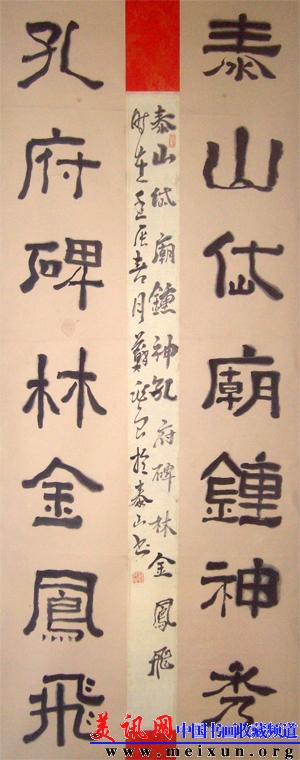 泰山岱廟鍾神秀
泰山岱廟鍾神孔府碑林金鳳飛
时在辰月鄭於泰山书
孔府碑林金鳳飛
美讯网 中国书画收藏频道
www.meixun.org